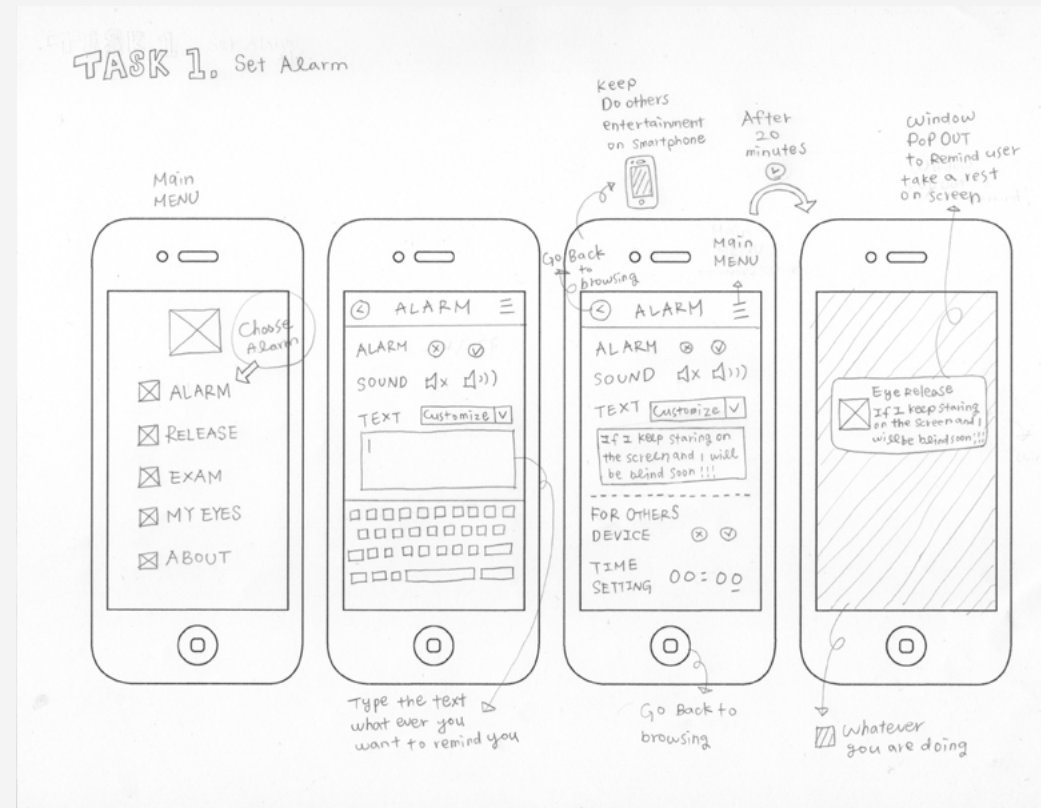 TASK 1. Set Alarm
Main
MENU
Choose
Alarm
ALARM
RELEASE
EXAM
MY EYES
ABOUT
ALARM
ALARM
SOUND
TEXT Customize
Type the text
what ever you
want to remind you
Keep
Do others
entertainment
on Smartphone
Go Back
to
browsing
Main
MENU
ALARM
ALARM
SOUND
TEXT Customize
If I keep staring on
the screen and I will
be blind soon !!!
FOR OTHERS
DEVICE
TIME
SETTING 00:00
Go Back to
browsing
After
20
minutes
Window
POP OUT
to Remind user
take a rest
on screen
Eye Release
If I keep staring
on the screen and I
will be blind soon!!!
Whatever
you are doing